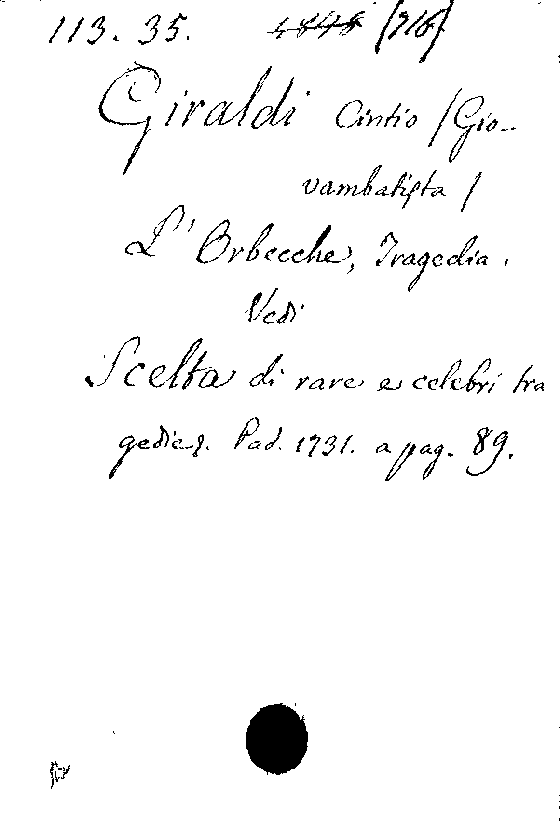 113. 35. (716)
Giraldi Cintio / Gio-
vambatista /
L'Orbecche, Tragedia.
Vedi
Scelta di rare e celebri tra
gedie. Pad. 1731. a pag. 89.